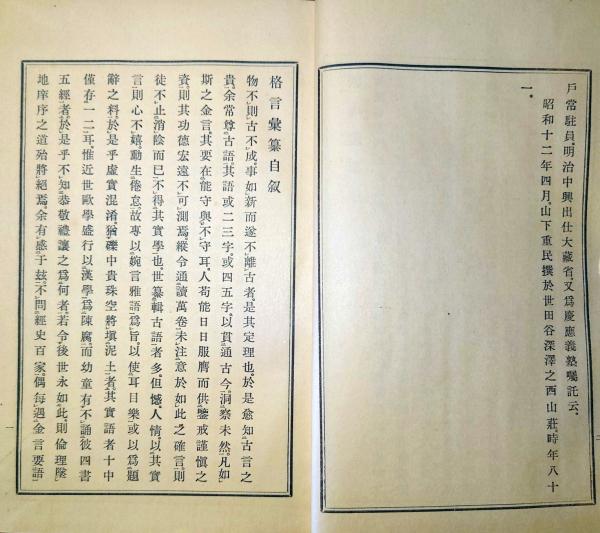 戶常駐員。明治中興出仕大藏省。又爲慶應義塾囑託云。
昭和十二年四月。山下重民撰於世田谷深澤之西山莊。時年八十
一。
格言彙纂自叙
物不則古不成。事如新而遂不離古者。是其定理也。於是愈知古言之
貴。余常尊古語。其語或二三字。或四五字。以貫通古今。洞察未然。凡如
斯之金言。其要在能守與不守耳。人苟能日日服膺而供鑒戒謹愼之
資。則其功德宏遠不可測焉。縱令通讀萬卷。未注意於如此之確言。則
徒不止消陰而已。不得其實學也。世纂輯古語者多。但憾人情以其實
言。則心不嬉動生倦怠。故專以婉言雅語爲旨。以使耳目樂。或以爲題
辭之料。於是乎虛實混淆。猶礫中貴珠空將塡泥土者。其實語者十中
僅存一二耳。惟近世歐學盛行。以漢學爲陳腐。而幼童有不誦彼四書
五經者。於是乎不知恭敬禮讓之爲何者。若令後世永如此。則倫理墜
地。庠序之道殆將絕焉。余有感于玆。不問經史百家。偶每遇金言要語。